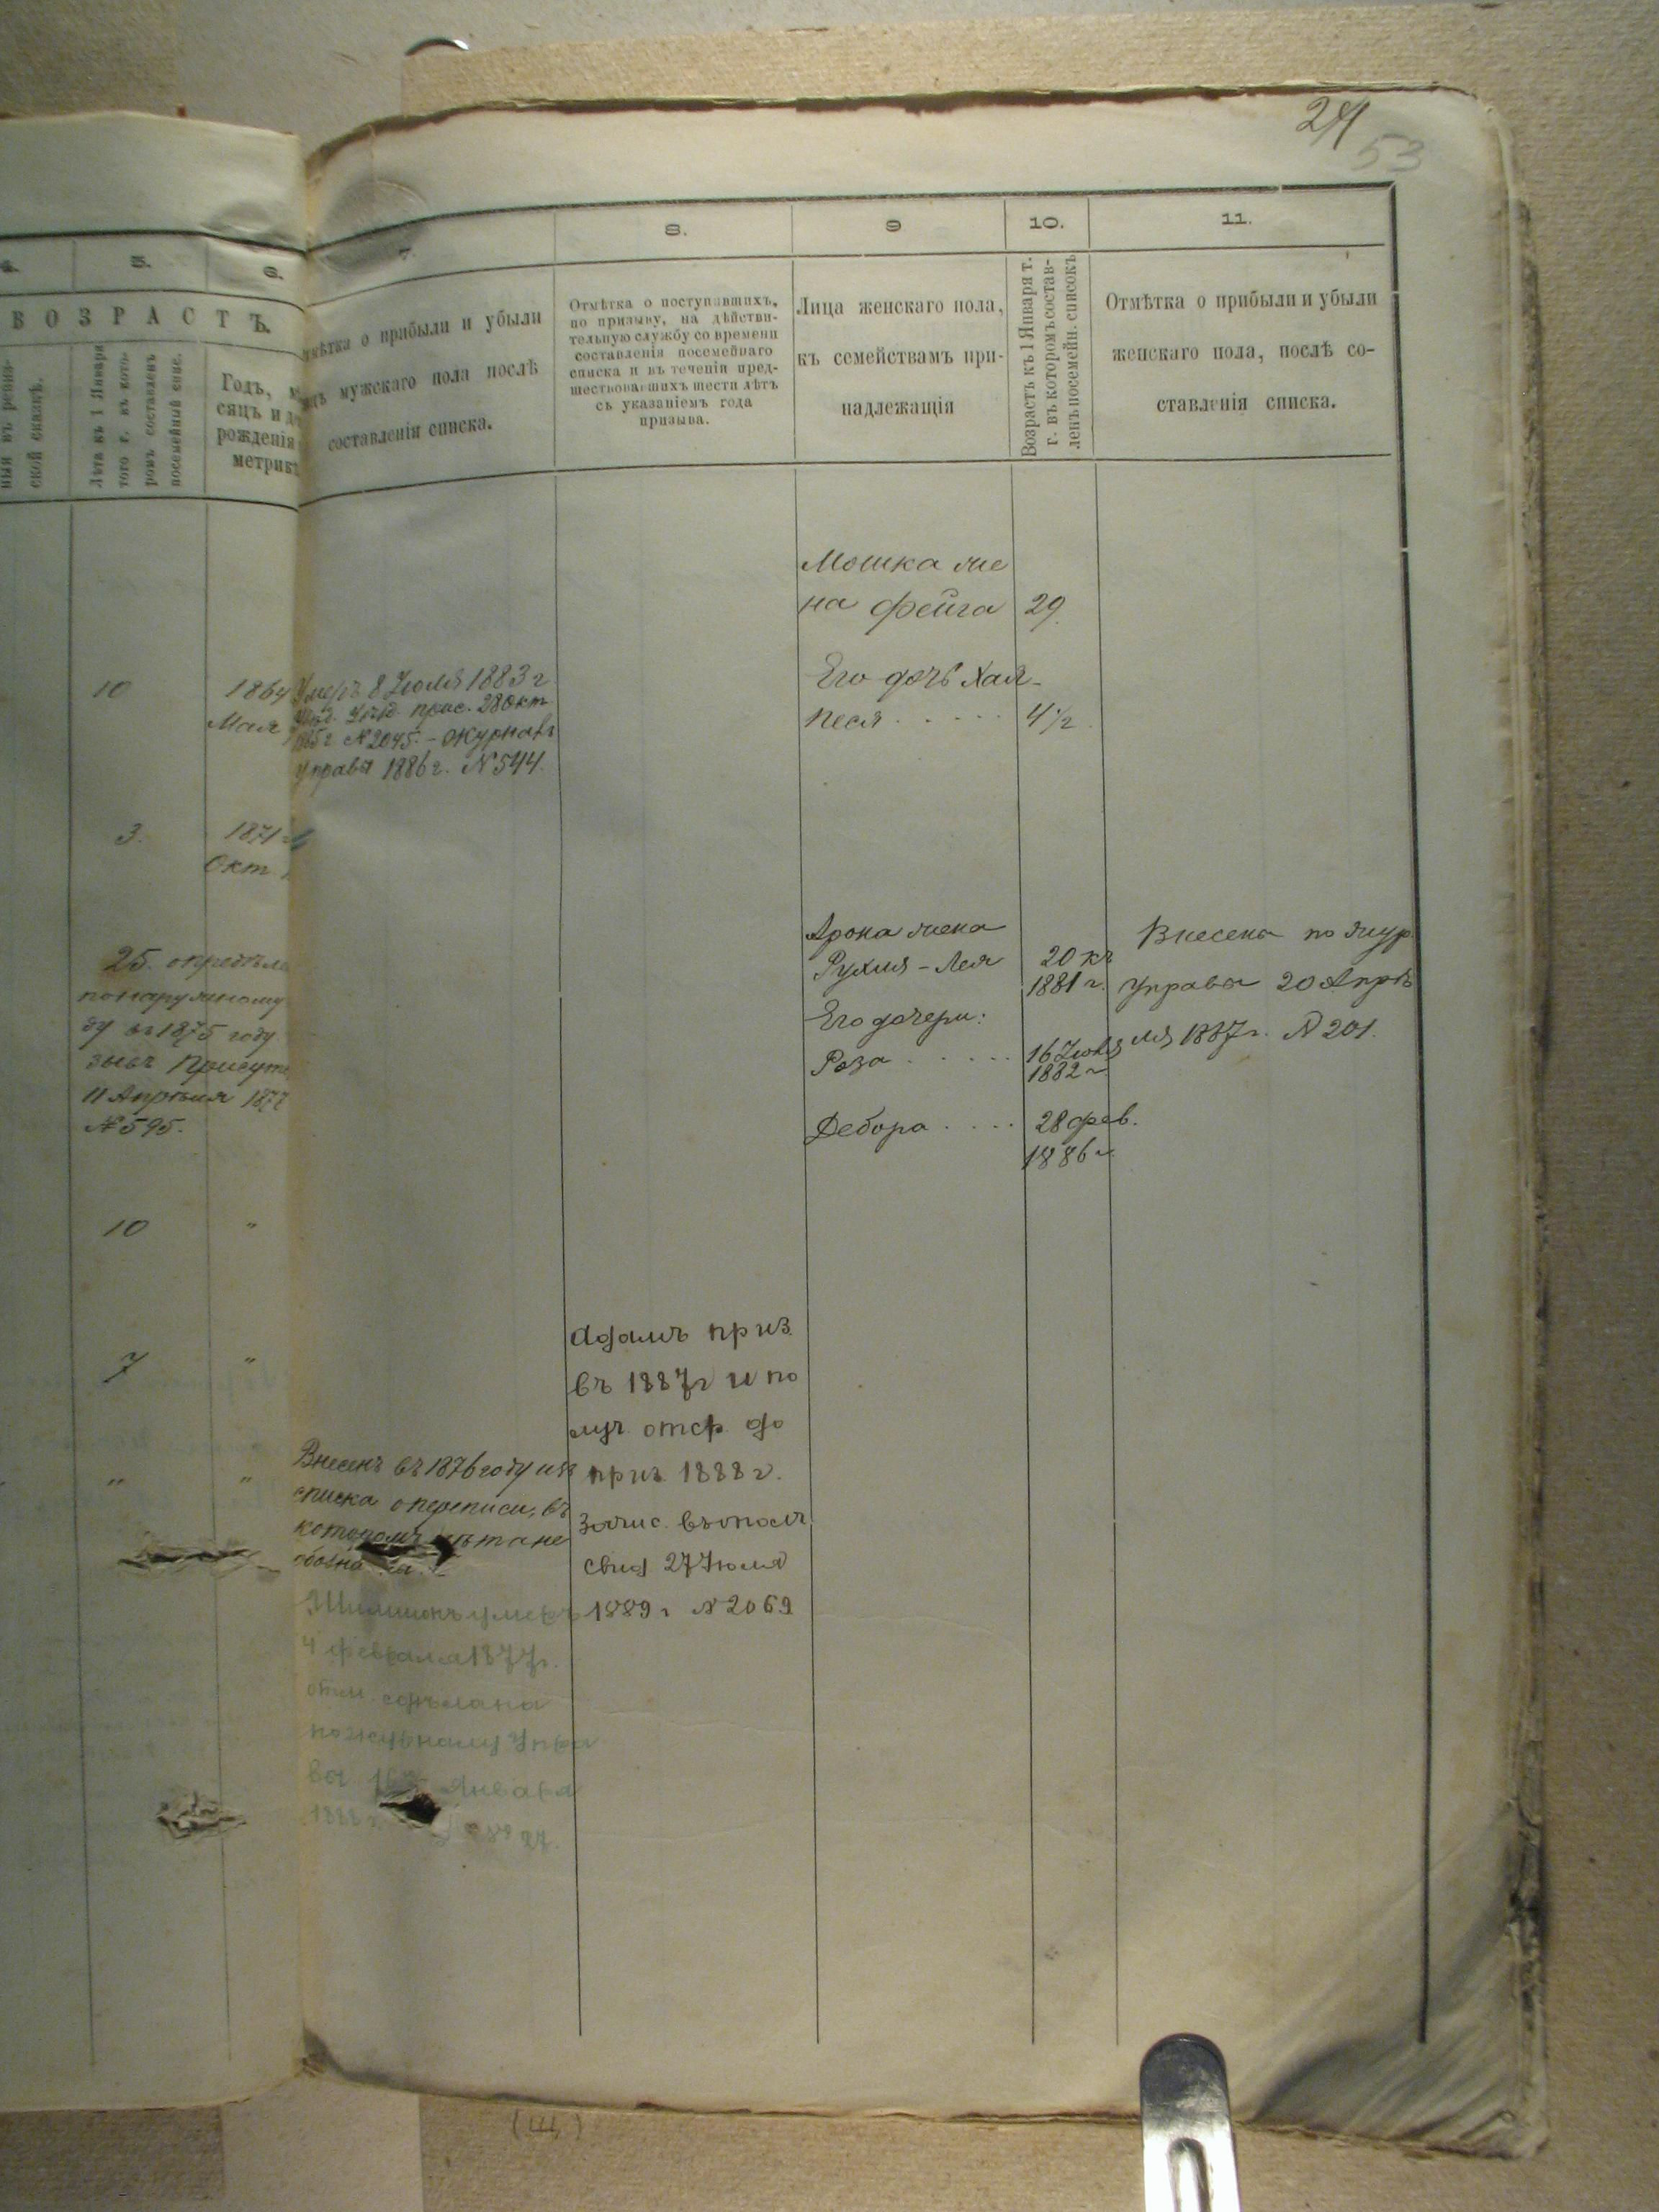 24
53
4.
5.
6.
7.
8.
9
10.
11.
ВОЗРАСТЪ.
ской сказкѣ.
Лѣта къ 1 Января
того г. въ кото-
ромъ составленъ
посемейный спис.
Годъ, мѣ
сяцъ и де
рожденія
метрикѣ
мѣтка о прибыли и убыли
мужскаго пола послѣ
составленія списка.
Отмѣтка о поступившихъ,
по призыву, на дѣйстви-
тельную службу со времени
составленія посемейнаго
списка и въ теченіи пред-
шествовавшихъ шести лѣтъ
съ указаніемъ года
призыва.
Лица женскаго пола,
къ семействамъ при-
надлежащія
Возрастъ къ 1 Января т.
г. въ которомъ состав-
ленъ посемейн. списокъ
Отмѣтка о прибыли и убыли
женскаго пола, послѣ со-
ставленія списка.
10
1864
Мая
3.
1871 г
Окт.
25. опредѣле
по наружному
ду въ 1875 году
зывъ Присут
11 Апрѣля 1877
№ 595.
10 "
7 "
" "
Умеръ 8 Іюля 1883 г
прис. 28 Окт.
1885 г. № 2045. - Журналъ
управы 1886 г. № 544.
Внесенъ въ 1876 году изъ
списка о переписи, въ
котором лѣта не
обозна
Шимшонъ умеръ
4 февраля 1877 г.
отм. сдѣлана
по журналу Упра
вы 16 Января
1888 г. № 27.
Адамъ приз.
въ 1887 г и по
луч. отср. до
приз. 1888 г.
Зачис. въ опол
свид 27 Іюля
1889 г № 2069
Мошка же
на Фейга 29.
Его дочь Хая-
Песя 4 1/2
Арона жена
Рухля - Лея 20 къ
1881 г.
Его дочери:
Роза 16 Іюля
1882 г
Дебора 28 фев.
1886 г.
Внесены по жур.
управы 20 Апрѣ
ля 1887 г. № 201.
(Щ)